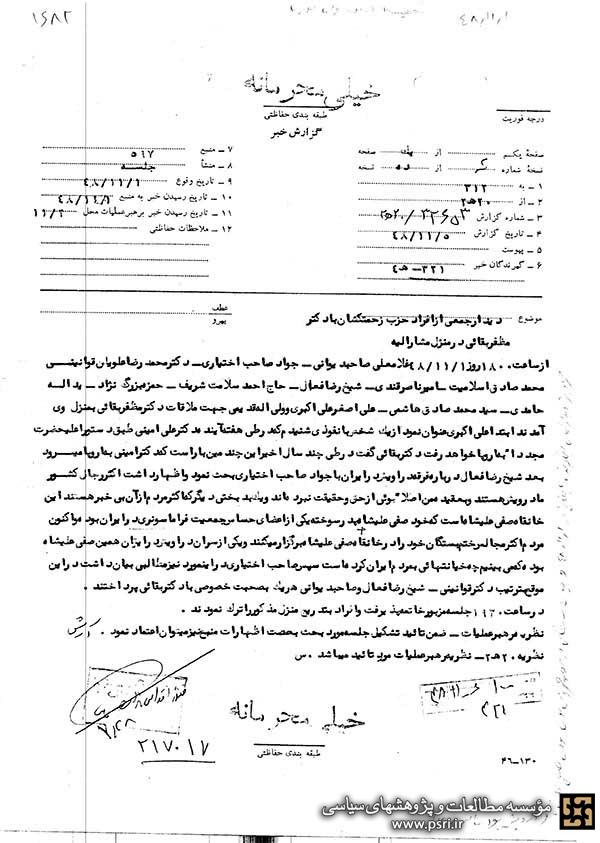 ۱۶۸۲
۴۸/۱/۱
خیلی محرمانه
طبقه بندی حفاظتی
گزارش خبر
درجه فوریت
صفحه یکم از یک صفحه
نسخه شماره از ده نسخه
۱ ـ به ۳۱۲
۲ ـ از ۲۰ه‍۲
۳ ـ شماره گزارش
۴ ـ تاریخ گزارش ۴۸/۱۱/۵
۵ ـ پیوست
۶ ـ گیرندگان خبر ۳۲۱ـ ه‍۴
۷ ـ منبع ۵۶۷
۸ ـ منشأ جلسه
۹ ـ تاریخ وقوع ۴۸/۱۱/۱
۱۰ ـ تاریخ رسیدن خبر به منبع
۱۱ ـ تاریخ رسیدن خبر برهبر عملیات محل ۱۱/۲
۱۲ ـ ملاحظات حفاظتی
موضوع دیدار جمعی از افراد حزب زحمتکشان با دکتر
مظفر بقائی در منزل مشارالیه
عطف
پیرو
از ساعت ۱۸۰۰ روز ۴۸/۱۱/۱ غلامعلی صاحب دیوانی ـ جواد صاحب اختیاری ـ دکتر محمد رضا علویان قوانینی ـ
محمد صادق اسلامیت ـ امیر ناصر قندی ـ شیخ رضا فعال ـ حاج احمد سلامت شریف ـ حمزه بزرگ نژاد ـ ید اله
حامدی ـ سید محمد صادق هاشمی ـ علی اصغر علی اکبری و ولی اله قدیمی جهت ملاقات دکتر مظفر بقائی بمنزل وی
آمدند ابتدا علی اکبری عنوان نمود از یک شخص با نفوذی شنیدم که در طی هفته آینده دکتر علی امینی طبق دستور اعلیحضرت
مجدداً به اروپا خواهد رفت دکتر بقائی گفت در طی چند سال اخیر این چندمین بار است که دکتر امینی به اروپا میرود
بعد شیخ رضا فعال درباره فرقه دراویز در ایران با جواد صاحب اختیاری بحث نمود و اظهار داشت اکثر رجال کشور
ما درویش هستند و بعقیده من اصلاً بوئی از حق و حقیقت نبرده اند و یک بدبختی دیگر که اکثر مردم از آن بی خبر هستند این
خانقاه صفی علیشاه است که خود صفی علیشاه پدر سوخته یکی از اعضای حساس جمعیت فراماسونری در ایران بود و اکنون
مردم اکثر مجالس ختم بستگان خود را در خانقاه صفی علیشاه برگزار میکنند و یکی از سران دراویز در ایران همین صفی علیشاه
بود که می بینیم چه خیانتهائی بمردم ایران کرده است سپس صاحب اختیاری در این مورد نیز مطالبی بیان داشت در این
موقع بترتیب دکتر قوانینی ـ شیخ رضا فعال و صاحب دیوانی هر یک بصحبت خصوصی با دکتر بقائی پرداختند .
در ساعت جلسه مزبور خاتمه پذیرفت و افراد بتدریج منزل مذکور را ترک نمودند .
نظریه رهبر عملیات ـ ضمن تائید تشکیل جلسه مورد بحث بصحت اظهارات منبع نیز میتوان اعتماد نمود .
نظریه ۲۰ه‍۲ ـ نظریه رهبر عملیات مورد تائید میباشد . س
خیلی محرمانه
طبقه بندی حفاظتی
۲۱۷۰۱۷
۳۲۱
۴۶ـ۱۳۰
مؤسسه مطالعات و پژوهشهای سیاسی
www.psri.ir